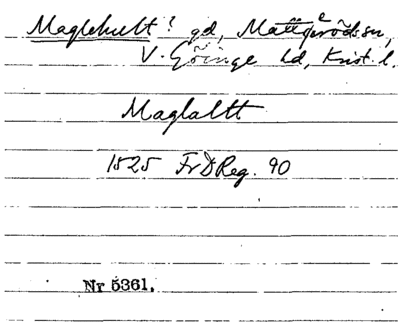 Maglehult? gd, Mattgerödssn,
V. Göinge hd, Krist. l.
Maglaltt
1525 FrDReg. 90
Nr 5361.